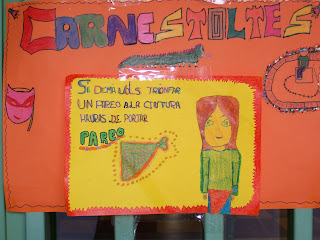 CARNESTOLTES
SI DEMÀ VOLS TRIOMFAR
UN PAREO A LA CINTURA
HAURÀS DE PORTAR
PAREO